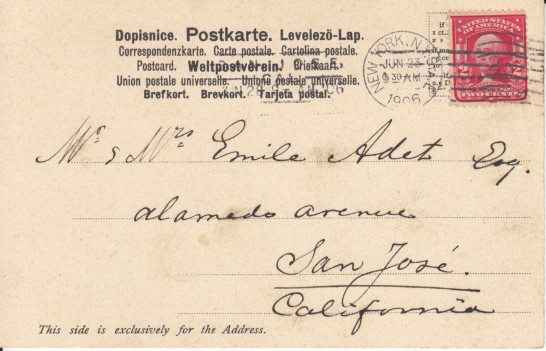 Dopisnice. Postkarte. Levelezö-Lap.
Correspondenzkarte. Carte postale. Cartolina postale.
Postcard. Weltpostverein. Briefkaart.
Union postale universelle. Unione postale universelle.
Brefkort. Brevkort. Tarjeta postal.
NEW YORK, N.Y.
JUN 23
9 30 AM
1906
UNITED STATES OF AMERICA
TWO CENTS
Mr. & Mrs Emile Adet Esq.
alamedo avenue
San José.
California
This side is exclusively for the Address.